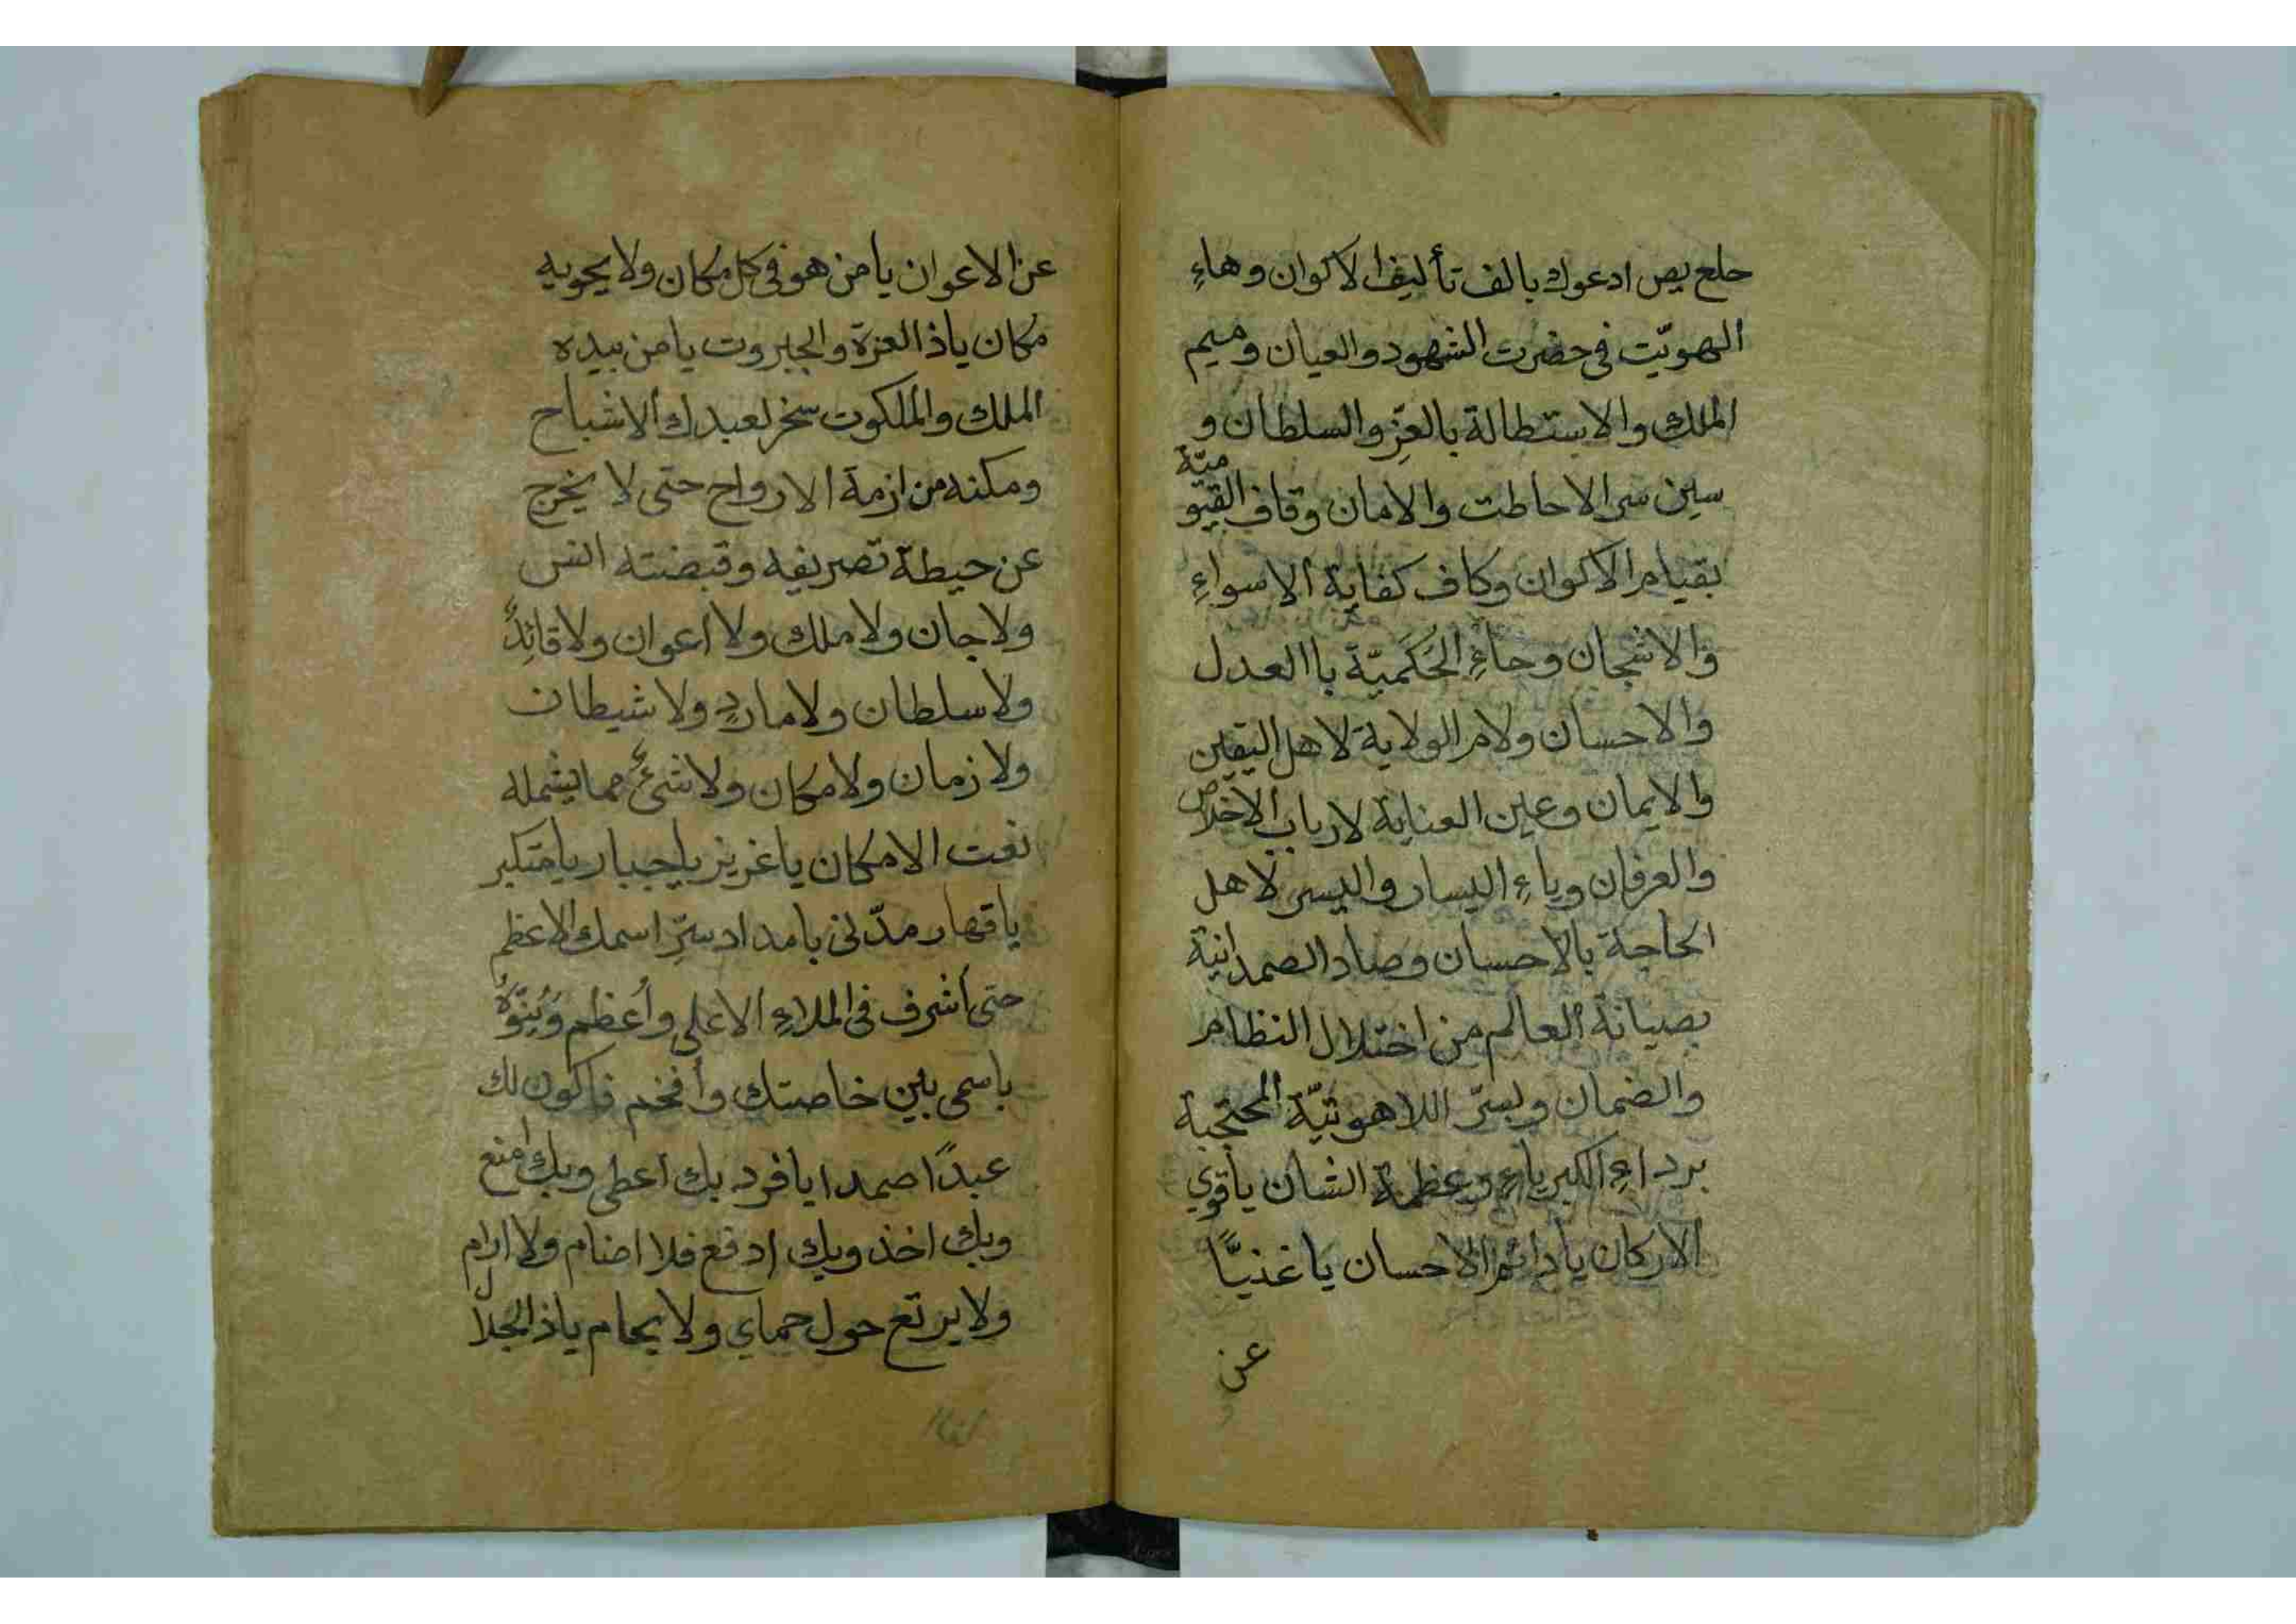 حلع يص ادعوك بالف تأليف الاكوان وهاءِ
الهويّت فى حضرت الشهود والعيان وميم
الملك والاستطالة بالعِزِ والسلطان و
سين سر الاحاطت والامان وقاف القيوميّة
بقيام الاكوان وكاف كفاية الاسواءِ
والاشجان وحاءِ الحَكَميّة باالعدل
والاحسان ولام الولاية لاهل اليقين
والايمان وعين العناية لارباب الاخلاص
والعرفان وياءِ اليسار واليسر لاهل
الحاجة بالاحسان وصاد الصمدانية
بصيانة العالم من اختلال النظام
والضمان وبسرّ اللاهوتيّة المحتجبة
برداءِ الكبرياءِ وعظمة الشان يا قوي
الاركان يا دائم الاحسان يا غنيًّا
عن
عن الاعوان يا من هو فى كل مكان ولا يحويه
مكان ياذ العزة والجبروت يا من بيده
الملك والملكوت سخر لعبدك الاشباح
ومكنه من ازمة الارواح حتى لا يخرج
عن حيطة تصريفه وقبضته انس
ولا جان ولا ملك ولا اعوان ولا قائِدٌ
ولا سلطان ولا ماردٍ ولا شيطان
ولا زمان ولا مكان ولا شئ مما يشمله
نعت الامكان يا عزيز يا جبار يا متكبر
يا قهار مدّنى بامداد سِرّ اسمك الاعظم
حتى اشرف فى الملاءِ الاعلى وأعظم ويُنَوّهُ
باسمى بين خاصتك وأفخم فاكون لك
عبدًا صمدا يا فرد بك اعطى وبك امنع
وبك اخذ وبك ادفع فلا اضام ولا ارام
ولا يرتع حول حماي ولا يحام ياذ الجلال